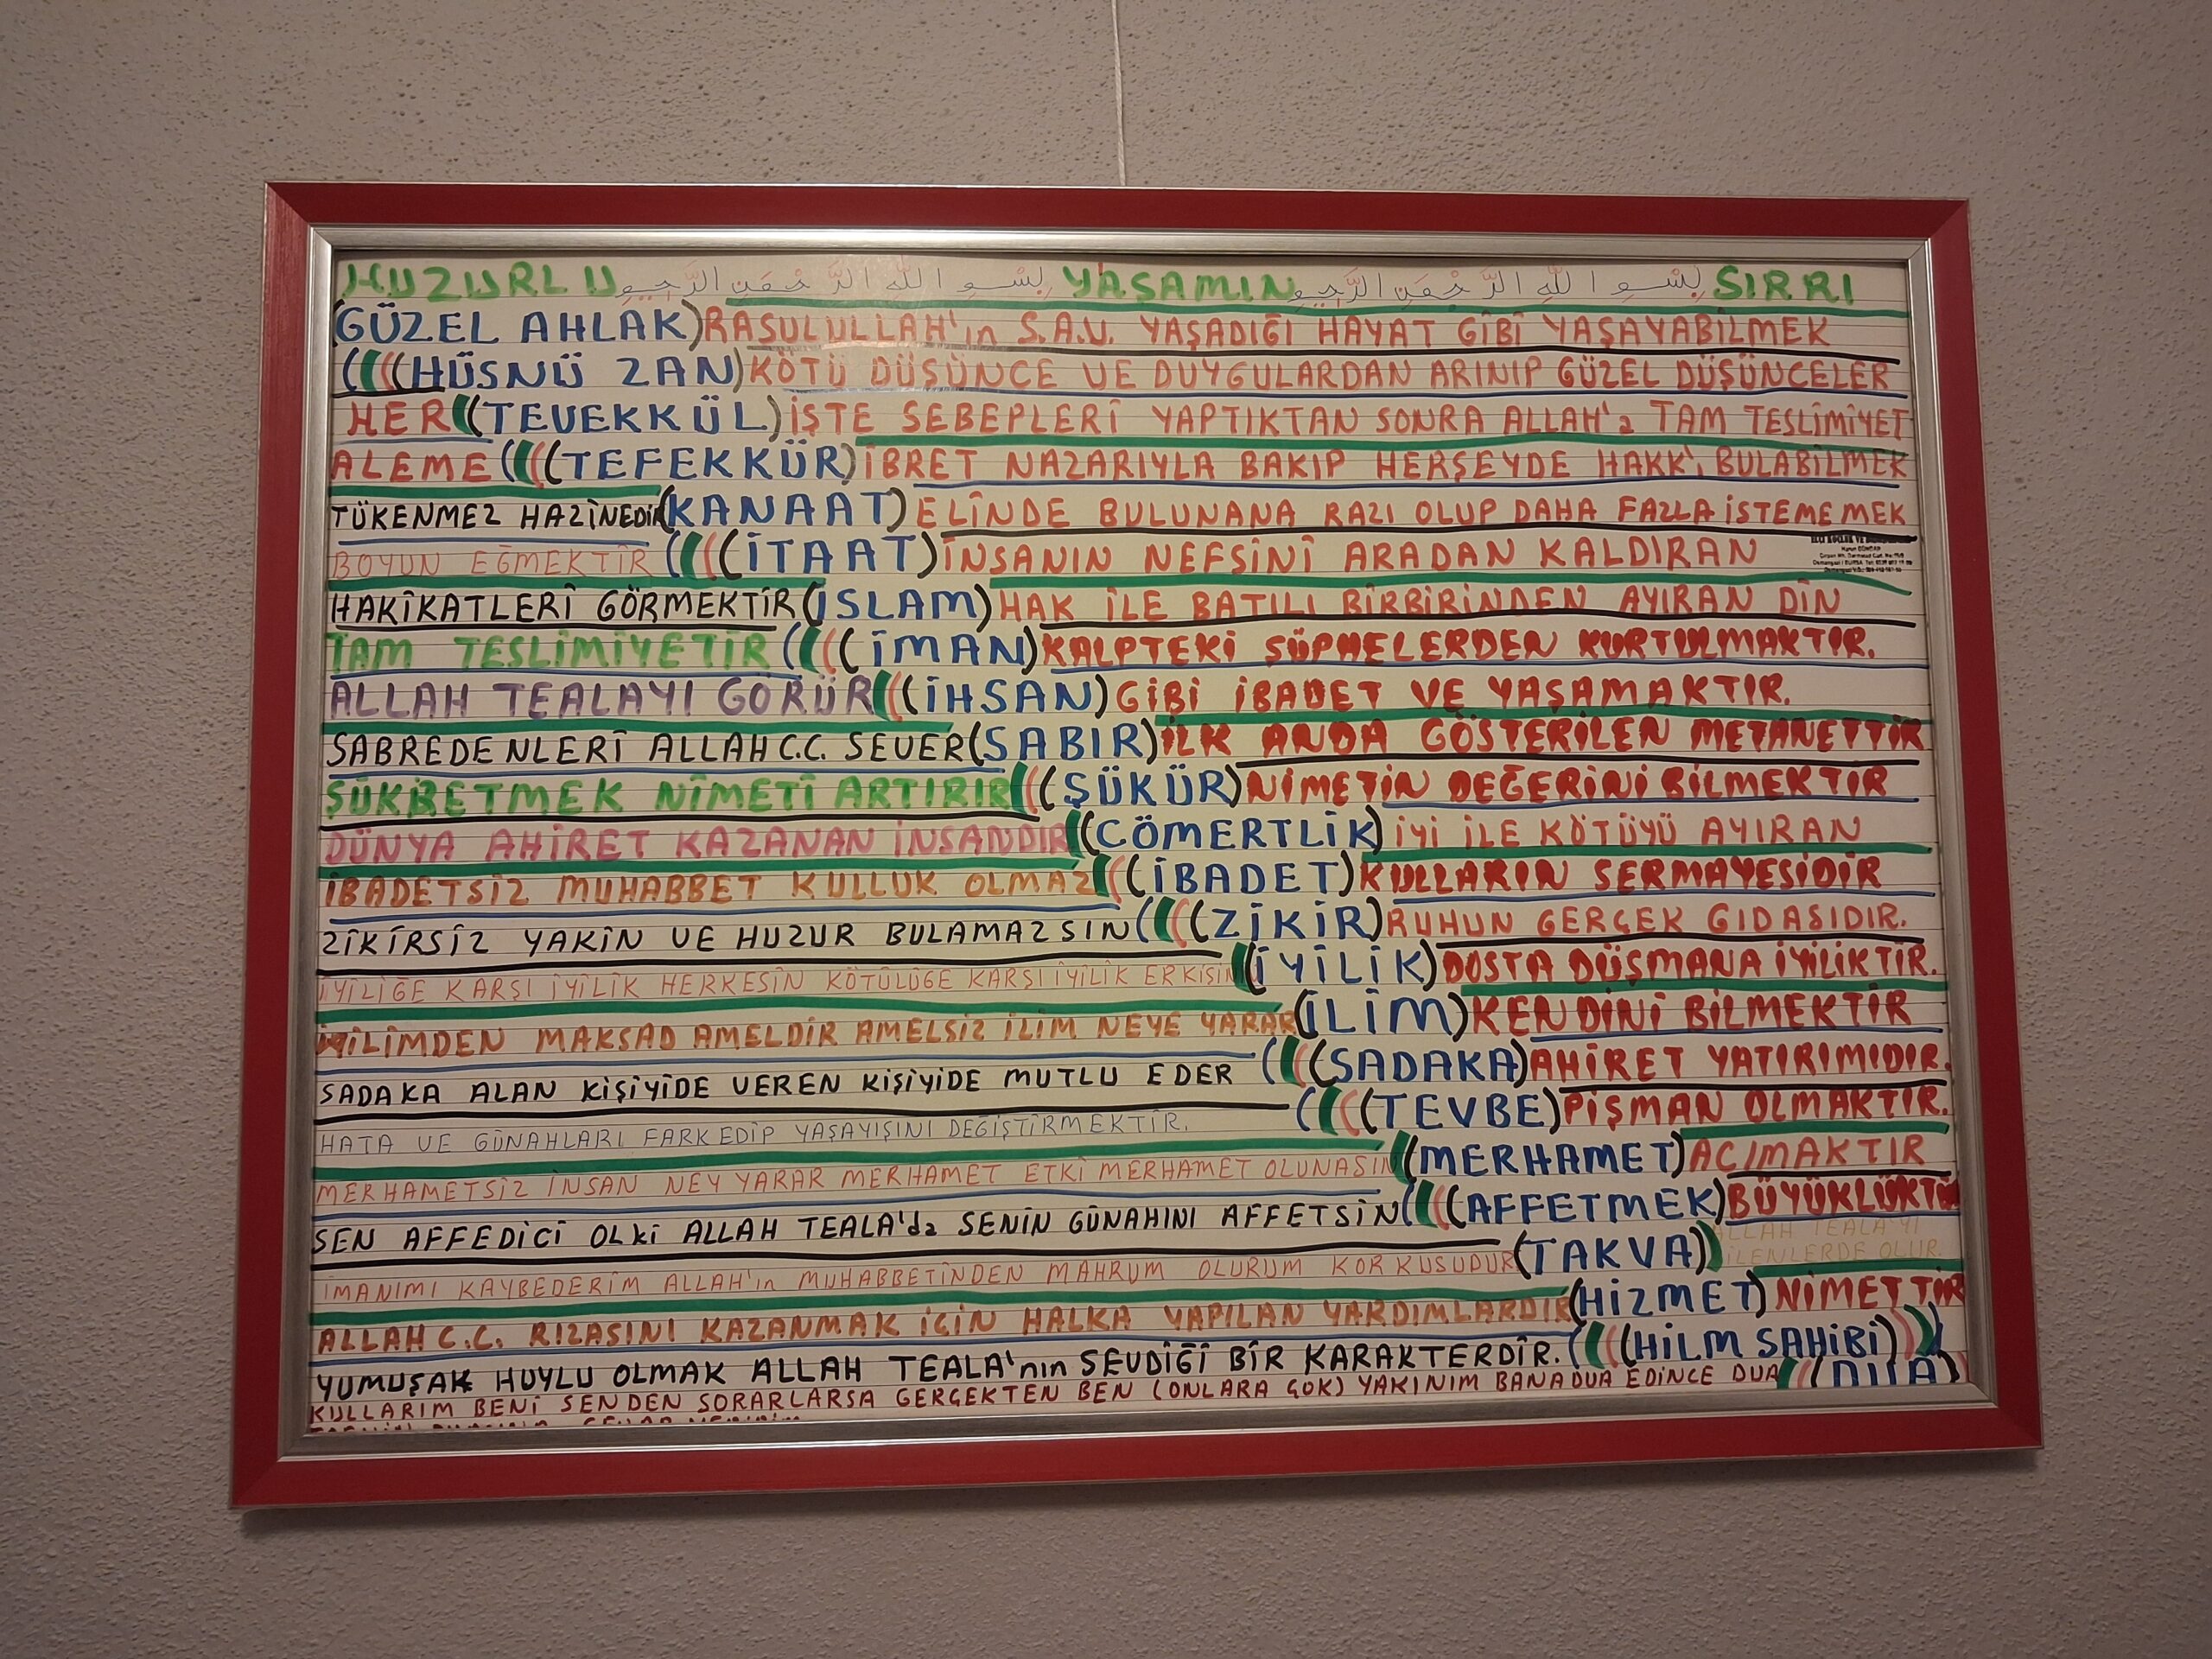 HUZURLU بِسْمِ اللّٰهِ الرَّحْمٰنِ الرَّحِيمِ YAŞAMIN بِسْمِ اللّٰهِ الرَّحْمٰنِ الرَّحِيمِ SIRRI
(GÜZEL AHLAK) RASULULLAH'ın S.A.V. YAŞADIĞI HAYAT GİBİ YAŞAYABİLMEK
((((HÜSNÜ ZAN) KÖTÜ DÜŞÜNCE VE DUYGULARDAN ARINIP GÜZEL DÜŞÜNCELER
HER ((TEVEKKÜL) İŞTE SEBEPLERİ YAPTIKTAN SONRA ALLAH'a TAM TESLİMİYET
ALEME ((((TEFEKKÜR) İBRET NAZARIYLA BAKIP HERŞEYDE HAKK'ı BULABİLMEK
TÜKENMEZ HAZİNEDİR (KANAAT) ELİNDE BULUNANA RAZI OLUP DAHA FAZLA İSTEMEMEK
BOYUN EĞMEKTİR ((((İTAAT) İNSANIN NEFSİNİ ARADAN KALDIRAN
HAKİKATLERİ GÖRMEKTİR (İSLAM) HAK İLE BATILI BİRBİRİNDEN AYIRAN DİN
TAM TESLİMİYETİR ((((İMAN) KALPTEKİ ŞÜPHELERDEN KURTULMAKTIR.
ALLAH TEALAYI GÖRÜR (((İHSAN) GİBİ İBADET VE YAŞAMAKTIR.
SABREDENLERİ ALLAH C.C. SEVER (SABIR) İLK ANDA GÖSTERİLEN METANETTİR
ŞÜKRETMEK NİMETİ ARTIRIR (((ŞÜKÜR) NİMETİN DEĞERİNİ BİLMEKTİR
DÜNYA AHİRET KAZANAN İNSANDIR ((CÖMERTLİK) İYİ İLE KÖTÜYÜ AYIRAN
İBADETSİZ MUHABBET KULLUK OLMAZ (((İBADET) KULLARIN SERMAYESİDİR
ZİKİRSİZ YAKİN VE HUZUR BULAMAZSIN ((((ZİKİR) RUHUN GERÇEK GIDASIDIR.
İYİLİĞE KARŞI İYİLİK HERKESİN KÖTÜLÜĞE KARŞI İYİLİK ERKİŞİNİN ((İYİLİK) DOSTA DÜŞMANA İYİLİKTİR.
İLİMDEN MAKSAD AMELDİR AMELSİZ İLİM NEYE YARAR (İLİM) KENDİNİ BİLMEKTİR
SADAKA ALAN KİŞİYİDE VEREN KİŞİYİDE MUTLU EDER ((((SADAKA) AHİRET YATIRIMIDIR.
HATA VE GÜNAHLARI FARKEDİP YAŞAYIŞINI DEĞİŞTİRMEKTİR. ((((TEVBE) PİŞMAN OLMAKTIR.
MERHAMETSİZ İNSAN NEY YARAR MERHAMET ETKİ MERHAMET OLUNASIN ((MERHAMET) ACIMAKTIR
SEN AFFEDİCİ OLKİ ALLAH TEALA'da SENİN GÜNAHINI AFFETSİN ((((AFFETMEK) BÜYÜKLÜKTÜR
İMANIMI KAYBEDERİM ALLAH'ın MUHABBETİNDEN MAHRUM OLURUM KORKUSUDUR (TAKVA)) ALLAH TEALA'YI BİLENLERDE OLUR.
ALLAH C.C. RIZASINI KAZANMAK İÇİN HALKA YAPILAN YARDIMLARDIR (HİZMET) NİMETTİR
YUMUŞAK HUYLU OLMAK ALLAH TEALA'nın SEVDİĞİ BİR KARAKTERDİR. ((((HİLM SAHİBİ))))
KULLARIM BENİ SENDEN SORARLARSA GERÇEKTEN BEN (ONLARA ÇOK) YAKINIM BANA DUA EDİNCE DUA (((DUA)